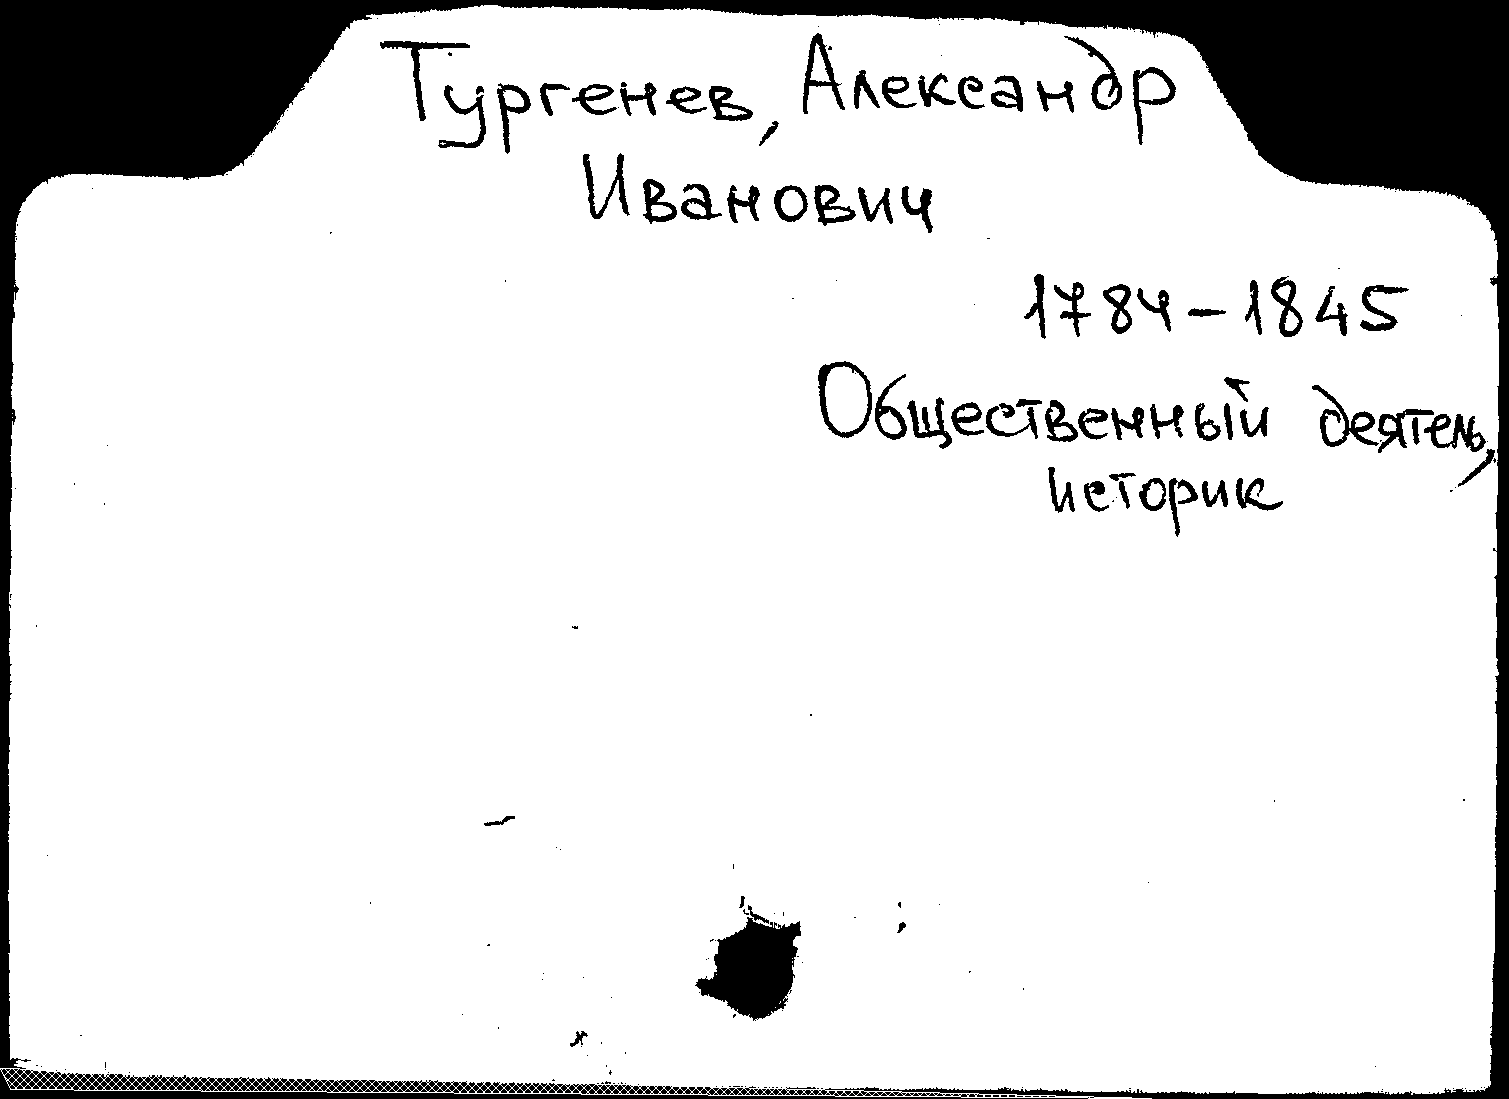 Тургенев, Александр
Иванович
1784-1845
Общественный деятель,
историк